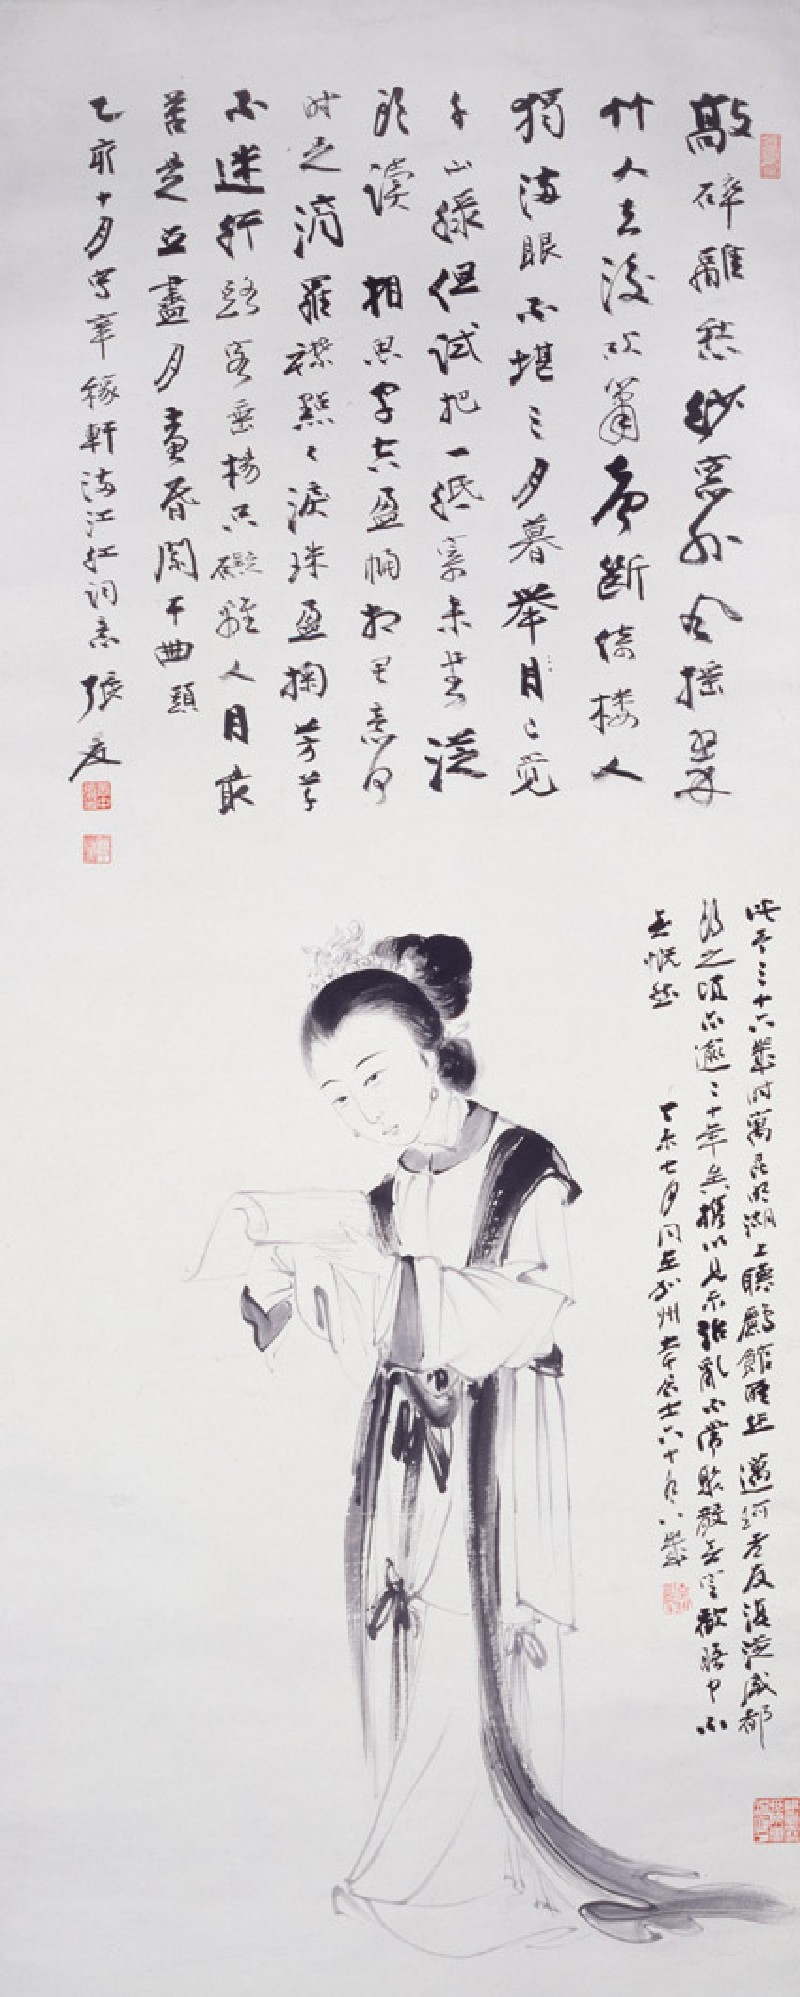 敲碎離愁紗窗外風搖翠
竹人去後吹簫聲斷倚樓人
獨滿眼不堪三月暮舉目已覺
千山綠但試把一紙寄來書從
頭讀相思字空盈幅相思意何
時足滴羅襟點〻淚珠盈掬芳草
不迷行路客垂楊只礙離人目最
苦是立盡月黃昏闌干曲 頭
乙亥十月寫辛稼軒滿江紅詞意 張爰
此予三十六歲時寓昆明湖上聽鸝館 老友後從成都
得之頃亦逾三十年矣攜以見示離亂不常聚散無定歡晤中不
無慨然 丁未七月同在加州 大千居士六十有八歲